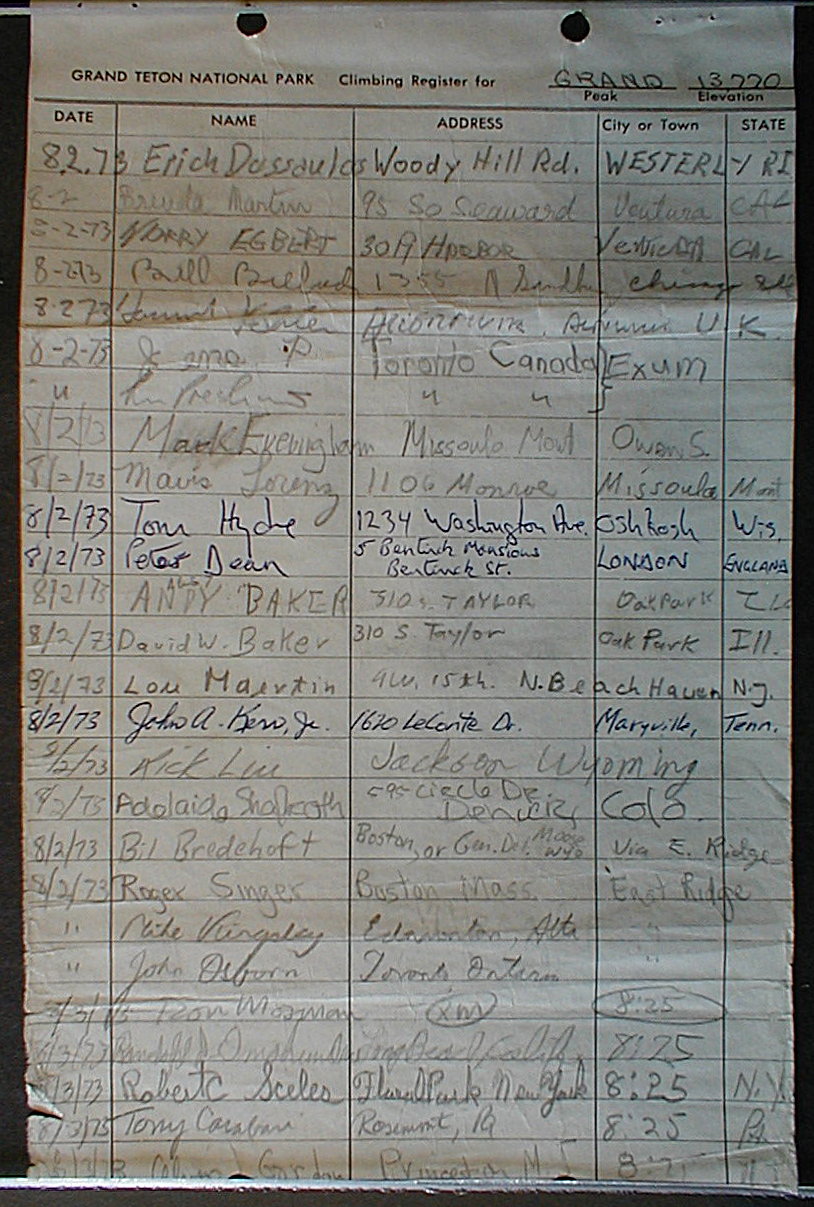 GRAND TETON NATIONAL PARK Climbing Register for GRAND 13,770
Peak Elevation
DATE NAME ADDRESS City or Town STATE
8.2.73 Erich Dassoulas Woody Hill Rd. WESTERLY RI
8-2 Brenda Martin 95 So Seaward Ventura CAL
8-2-73 NORRY EGBERT 30A HARBOR VENTURA CAL
8-2-73 Bill 1355 N
8-2-73 U.K.
8-2-73 Toronto Canada Exum
" " "
8/2/73 Mark Everingham Missoula Mont Owen S.
8/2/73 Mavis Lorenz 1106 Monroe Missoula Mont
8/2/73 Tom Hyde 1234 Washington Ave. Oshkosh Wis.
8/2/73 Peter Dean 5 Bentinck Mansions
Bentinck St. LONDON ENGLAND
8/2/73 ANDY BAKER 310 S. TAYLOR Oak Park ILL
8/2/73 David W. Baker 310 S. Taylor Oak Park Ill.
8/2/73 Lou Maertin 9 W. 15th. N. Beach Haven N.J.
8/2/73 John A. Kerr, Jr. 1620 LeConte Dr. Maryville, Tenn.
8/2/73 Rick Liu Jackson Wyoming
8/2/73 Adelaide Shafroth 595 Circle Dr.
Denver, Colo.
8/2/73 Bil Bredehoft Boston, or Gen. Del. Moose Wyo Via E. Ridge
8/2/73 Roger Singer Boston Mass. East Ridge
" Mike Kingsley Edmonton, Alta "
" John Osborn Toronto Ontario "
8/3/73 8:25
8/3/73 Long Beach, Calif. 8:25
8/3/73 Robert C Sceles Floral Park New York 8:25 N.Y.
8/3/73 Tony Rosemont, Pa 8:25 Pa.
Gordon Princeton N.J.